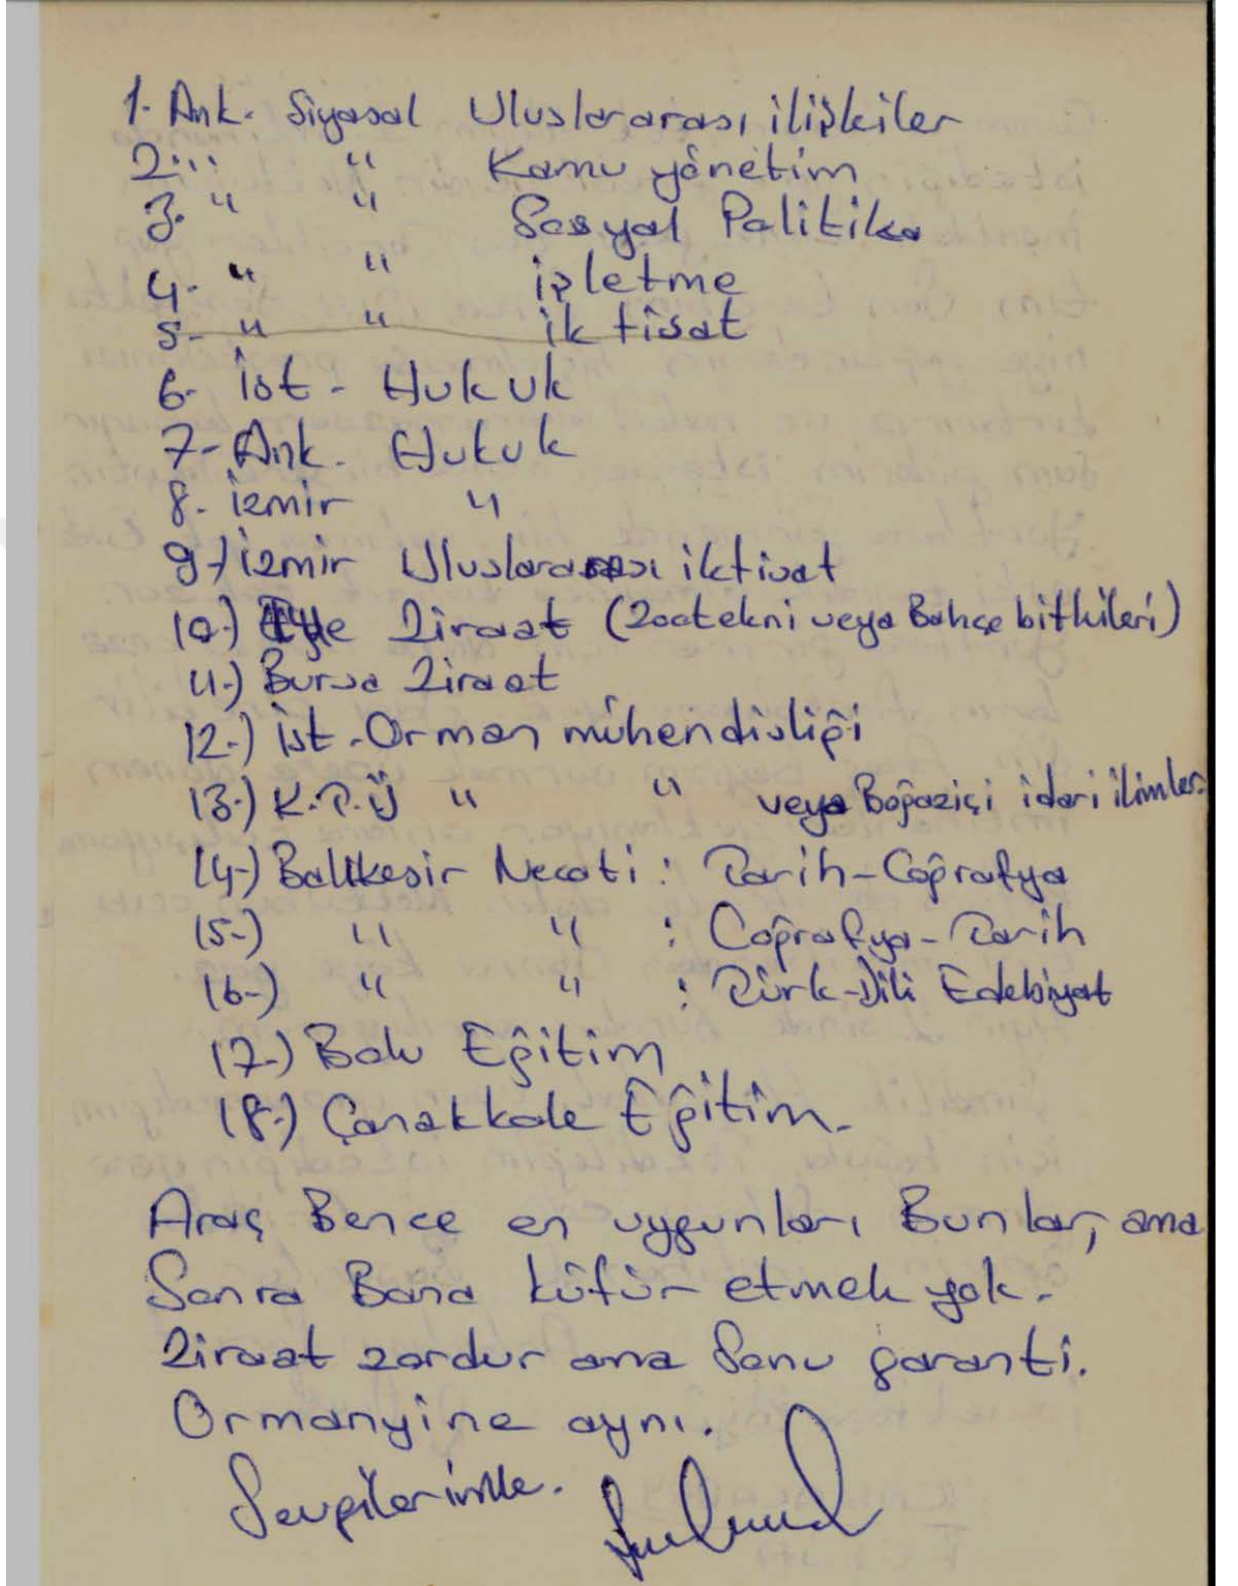 1. Ank. Siyasal Uluslararası ilişkiler
2. " " Kamu yönetim
3. " " Sosyal Politika
4. " " işletme
5- " " iktisat
6- İst - Hukuk
7- Ank. Hukuk
8- izmir "
9-) izmir Uluslararası iktisat
10-) Ege Ziraat (Zootekni veya Bahçe bitkileri)
11-) Bursa Ziraat
12-) İst. Orman mühendisliği
13-) K.T.Ü " " veya Boğaziçi idari ilimler.
14-) Balıkesir Necati : Tarih-Coğrafya
15-) " " : Coğrafya-Tarih
16-) " " : Türk-Dili Edebiyat
17-) Bolu Eğitim
18-) Çanakkale Eğitim.
Araç Bence en uygunları Bunlar, ama
Sonra Bana küfür etmek yok.
Ziraat zordur ama Sonu garanti.
Orman yine aynı.
Sevgilerimle.